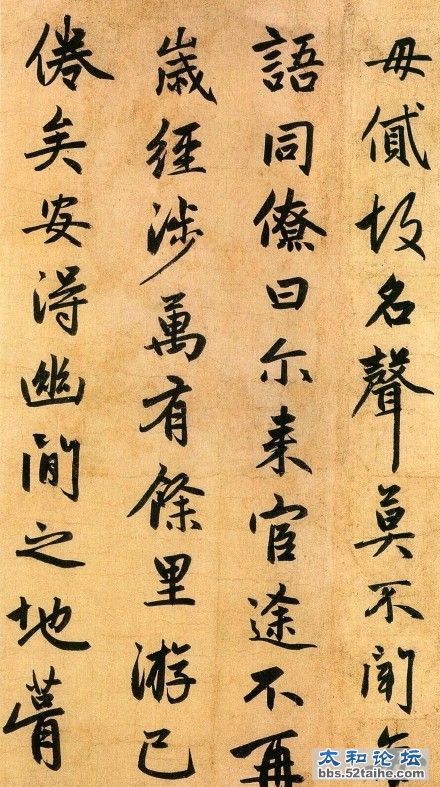 毋貸故名聲莫不聞
語同僚曰尔来官途不再
歲經涉萬有餘里游已
倦矣安得幽閒之地葺
太和论坛
bbs.52taihe.com